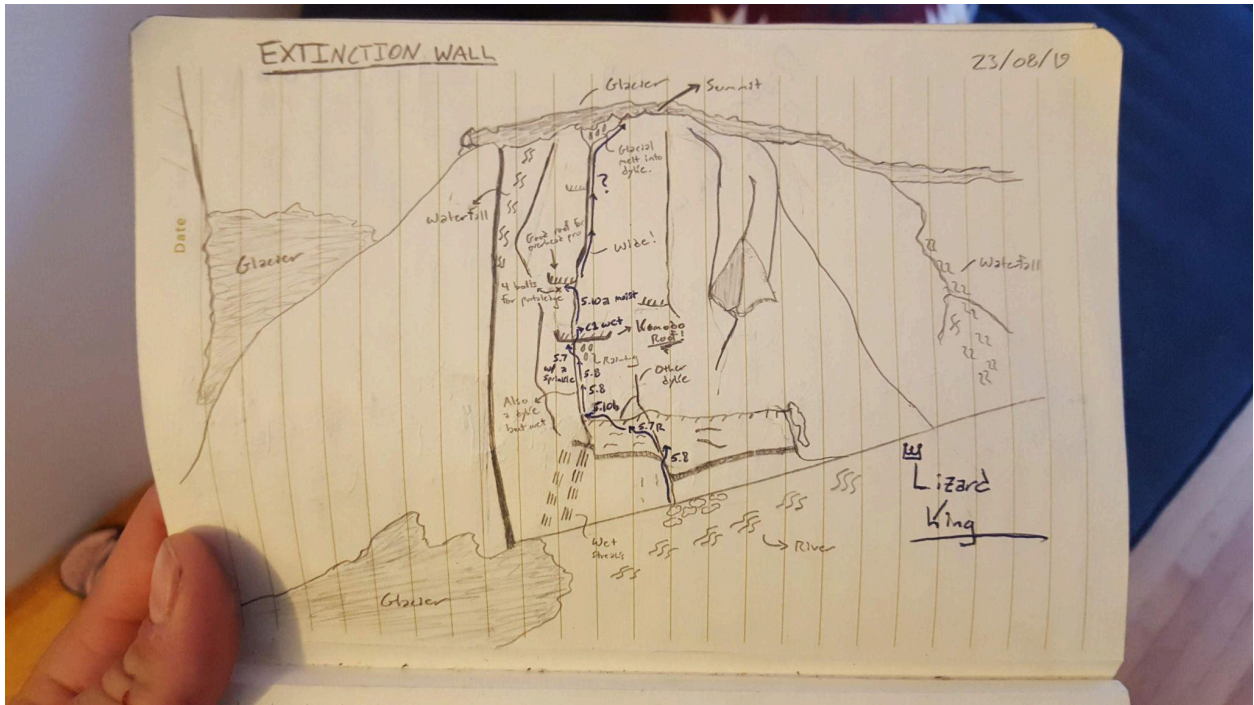 EXTINCTION WALL
23/08/19
Glacier
Summit
Glacial
melt into
dyke.
?
Waterfall
Good roof for
overhead pro
Date
Glacier
Wide!
Waterfall
4 bolts
for portaledge
5.10a moist
C1 wet
Komodo
Roof!
5.7
w/ a
sprinkle
Raining
5.8
Other
dyke
5.8
Also
a dyke
but wet
5.10b
5.7R
5.8
Lizard
King
Wet
streaks
River
Glacier